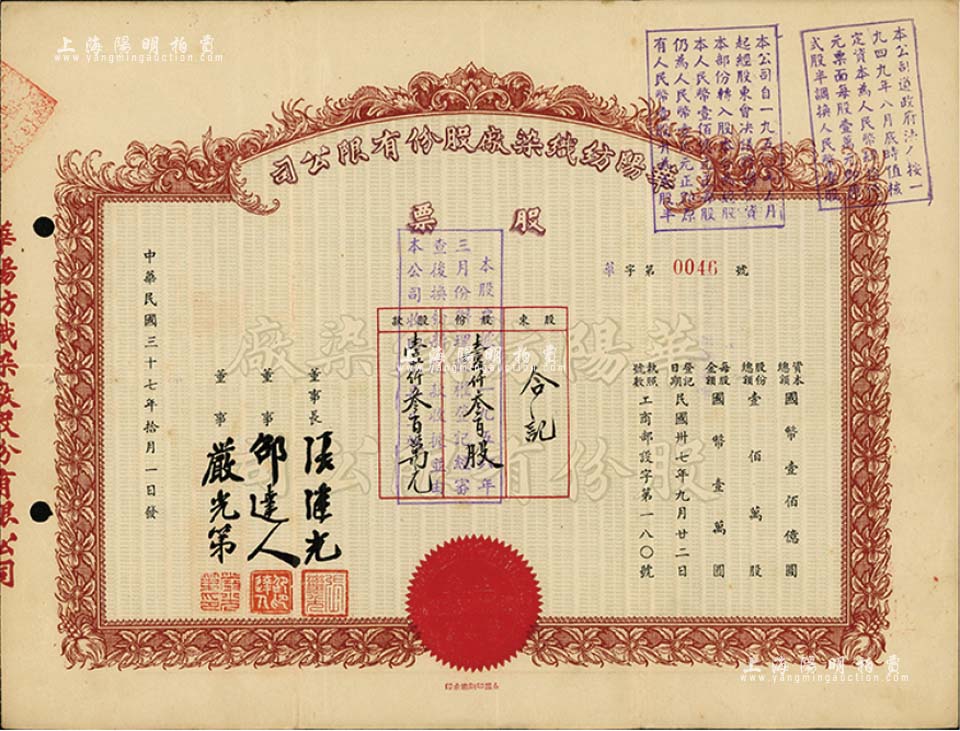 上海陽明拍賣
www.yangmingauction.com
本公司遵政府法令按一
九四九年八月底時值核
定資本為人民幣
元票面每股壹萬元
式股半調換人民幣
本公司自一九五
起經股東會決議
本部份轉入股本
本人民幣壹佰
仍為人民幣壹元正
有人民幣
華陽紡織染廠股份有限公司
股票
華字第 0046 號
資本總額 國幣壹佰億圓
股份總額 壹佰萬股
每股金額 國幣壹萬圓
登記日期 民國卅七年九月廿二日
執照號數 工商部設字第一八〇號
股東
合記
股份
壹仟叁百股
股款
壹仟叁百萬元
本股
三月份辦理股權登記經審
查後換
本公司收
華陽紡織染廠
股份有限公司
董事長 張
董事 邵達人
董事 嚴光第
中華民國三十七年拾月一日發
華陽紡織染廠股份有限公司
上海陽明拍賣
www.yangmingauction.com
上海陽明拍賣
www.yangmingauction.com